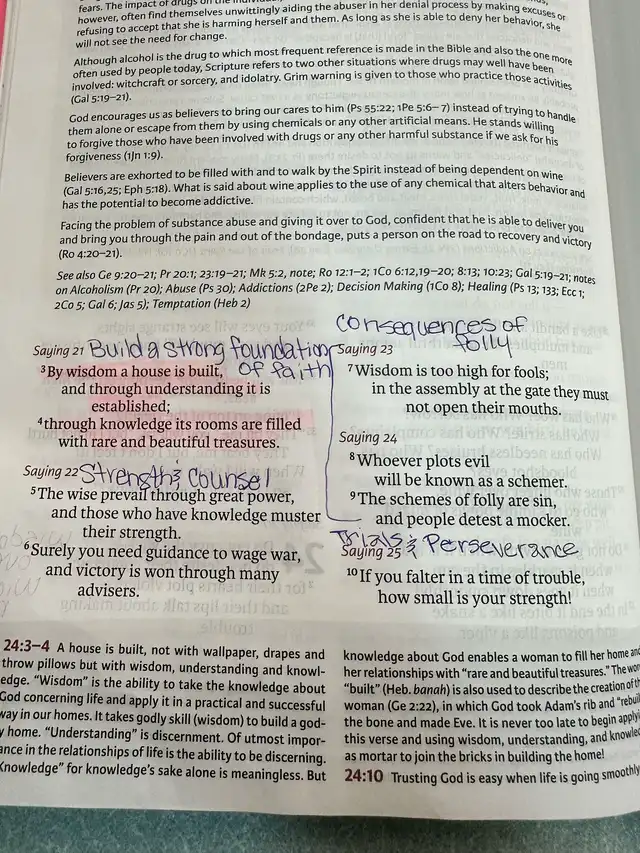 fears. The impact of drugs on the
however, often find themselves unwittingly aiding the abuser in her denial process by making excuses or
refusing to accept that she is harming herself and them. As long as she is able to deny her behavior, she
will not see the need for change.
Although alcohol is the drug to which most frequent reference is made in the Bible and also the one more
often used by people today, Scripture refers to two other situations where drugs may well have been
involved: witchcraft or sorcery, and idolatry. Grim warning is given to those who practice those activities
(Gal 5:19–21).
God encourages us as believers to bring our cares to him (Ps 55:22; 1Pe 5:6–7) instead of trying to handle
them alone or escape from them by using chemicals or any other artificial means. He stands willing
to forgive those who have been involved with drugs or any other harmful substance if we ask for his
forgiveness (1Jn 1:9).
Believers are exhorted to be filled with and to walk by the Spirit instead of being dependent on wine
(Gal 5:16,25; Eph 5:18). What is said about wine applies to the use of any chemical that alters behavior and
has the potential to become addictive.
Facing the problem of substance abuse and giving it over to God, confident that he is able to deliver you
and bring you through the pain and out of the bondage, puts a person on the road to recovery and victory
(Ro 4:20–21).
See also Ge 9:20–21; Pr 20:1; 23:19–21; Mk 5:2, note; Ro 12:1–2; 1Co 6:12,19–20; 8:13; 10:23; Gal 5:19–21; notes
on Alcoholism (Pr 20); Abuse (Ps 30); Addictions (2Pe 2); Decision Making (1Co 8); Healing (Ps 13; 133; Ecc 1;
2Co 5; Gal 6; Jas 5); Temptation (Heb 2)
Saying 21 Build a strong foundation
of faith
3 By wisdom a house is built,
and through understanding it is
established;
4 through knowledge its rooms are filled
with rare and beautiful treasures.
Saying 22 Strength & Counsel
5 The wise prevail through great power,
and those who have knowledge muster
their strength.
6 Surely you need guidance to wage war,
and victory is won through many
advisers.
Consequences of
folly
Saying 23
7 Wisdom is too high for fools;
in the assembly at the gate they must
not open their mouths.
Saying 24
8 Whoever plots evil
will be known as a schemer.
9 The schemes of folly are sin,
and people detest a mocker.
Trials & Perseverance
Saying 25
10 If you falter in a time of trouble,
how small is your strength!
24:3–4 A house is built, not with wallpaper, drapes and
throw pillows but with wisdom, understanding and knowl-
edge. "Wisdom" is the ability to take the knowledge about
God concerning life and apply it in a practical and successful
way in our homes. It takes godly skill (wisdom) to build a god-
y home. "Understanding" is discernment. Of utmost impor-
ance in the relationships of life is the ability to be discerning.
Knowledge" for knowledge's sake alone is meaningless. But
knowledge about God enables a woman to fill her home and
her relationships with "rare and beautiful treasures." The wor
"built" (Heb. banah) is also used to describe the creation of th
woman (Ge 2:22), in which God took Adam's rib and "rebuil
the bone and made Eve. It is never too late to begin applyi
this verse and using wisdom, understanding, and knowled
as mortar to join the bricks in building the home!
24:10 Trusting God is easy when life is going smoothly